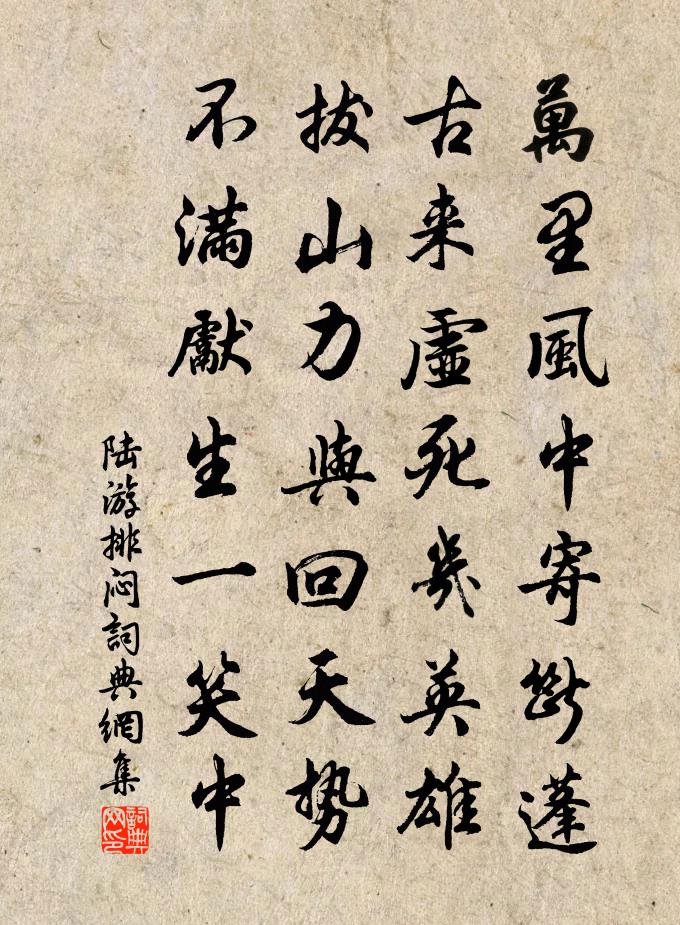 萬里風中寄斷蓬
古来虛死幾英雄
拔山力與回天势
不滿獻生一笑中
陆游排闷詞典網集
詞典网印